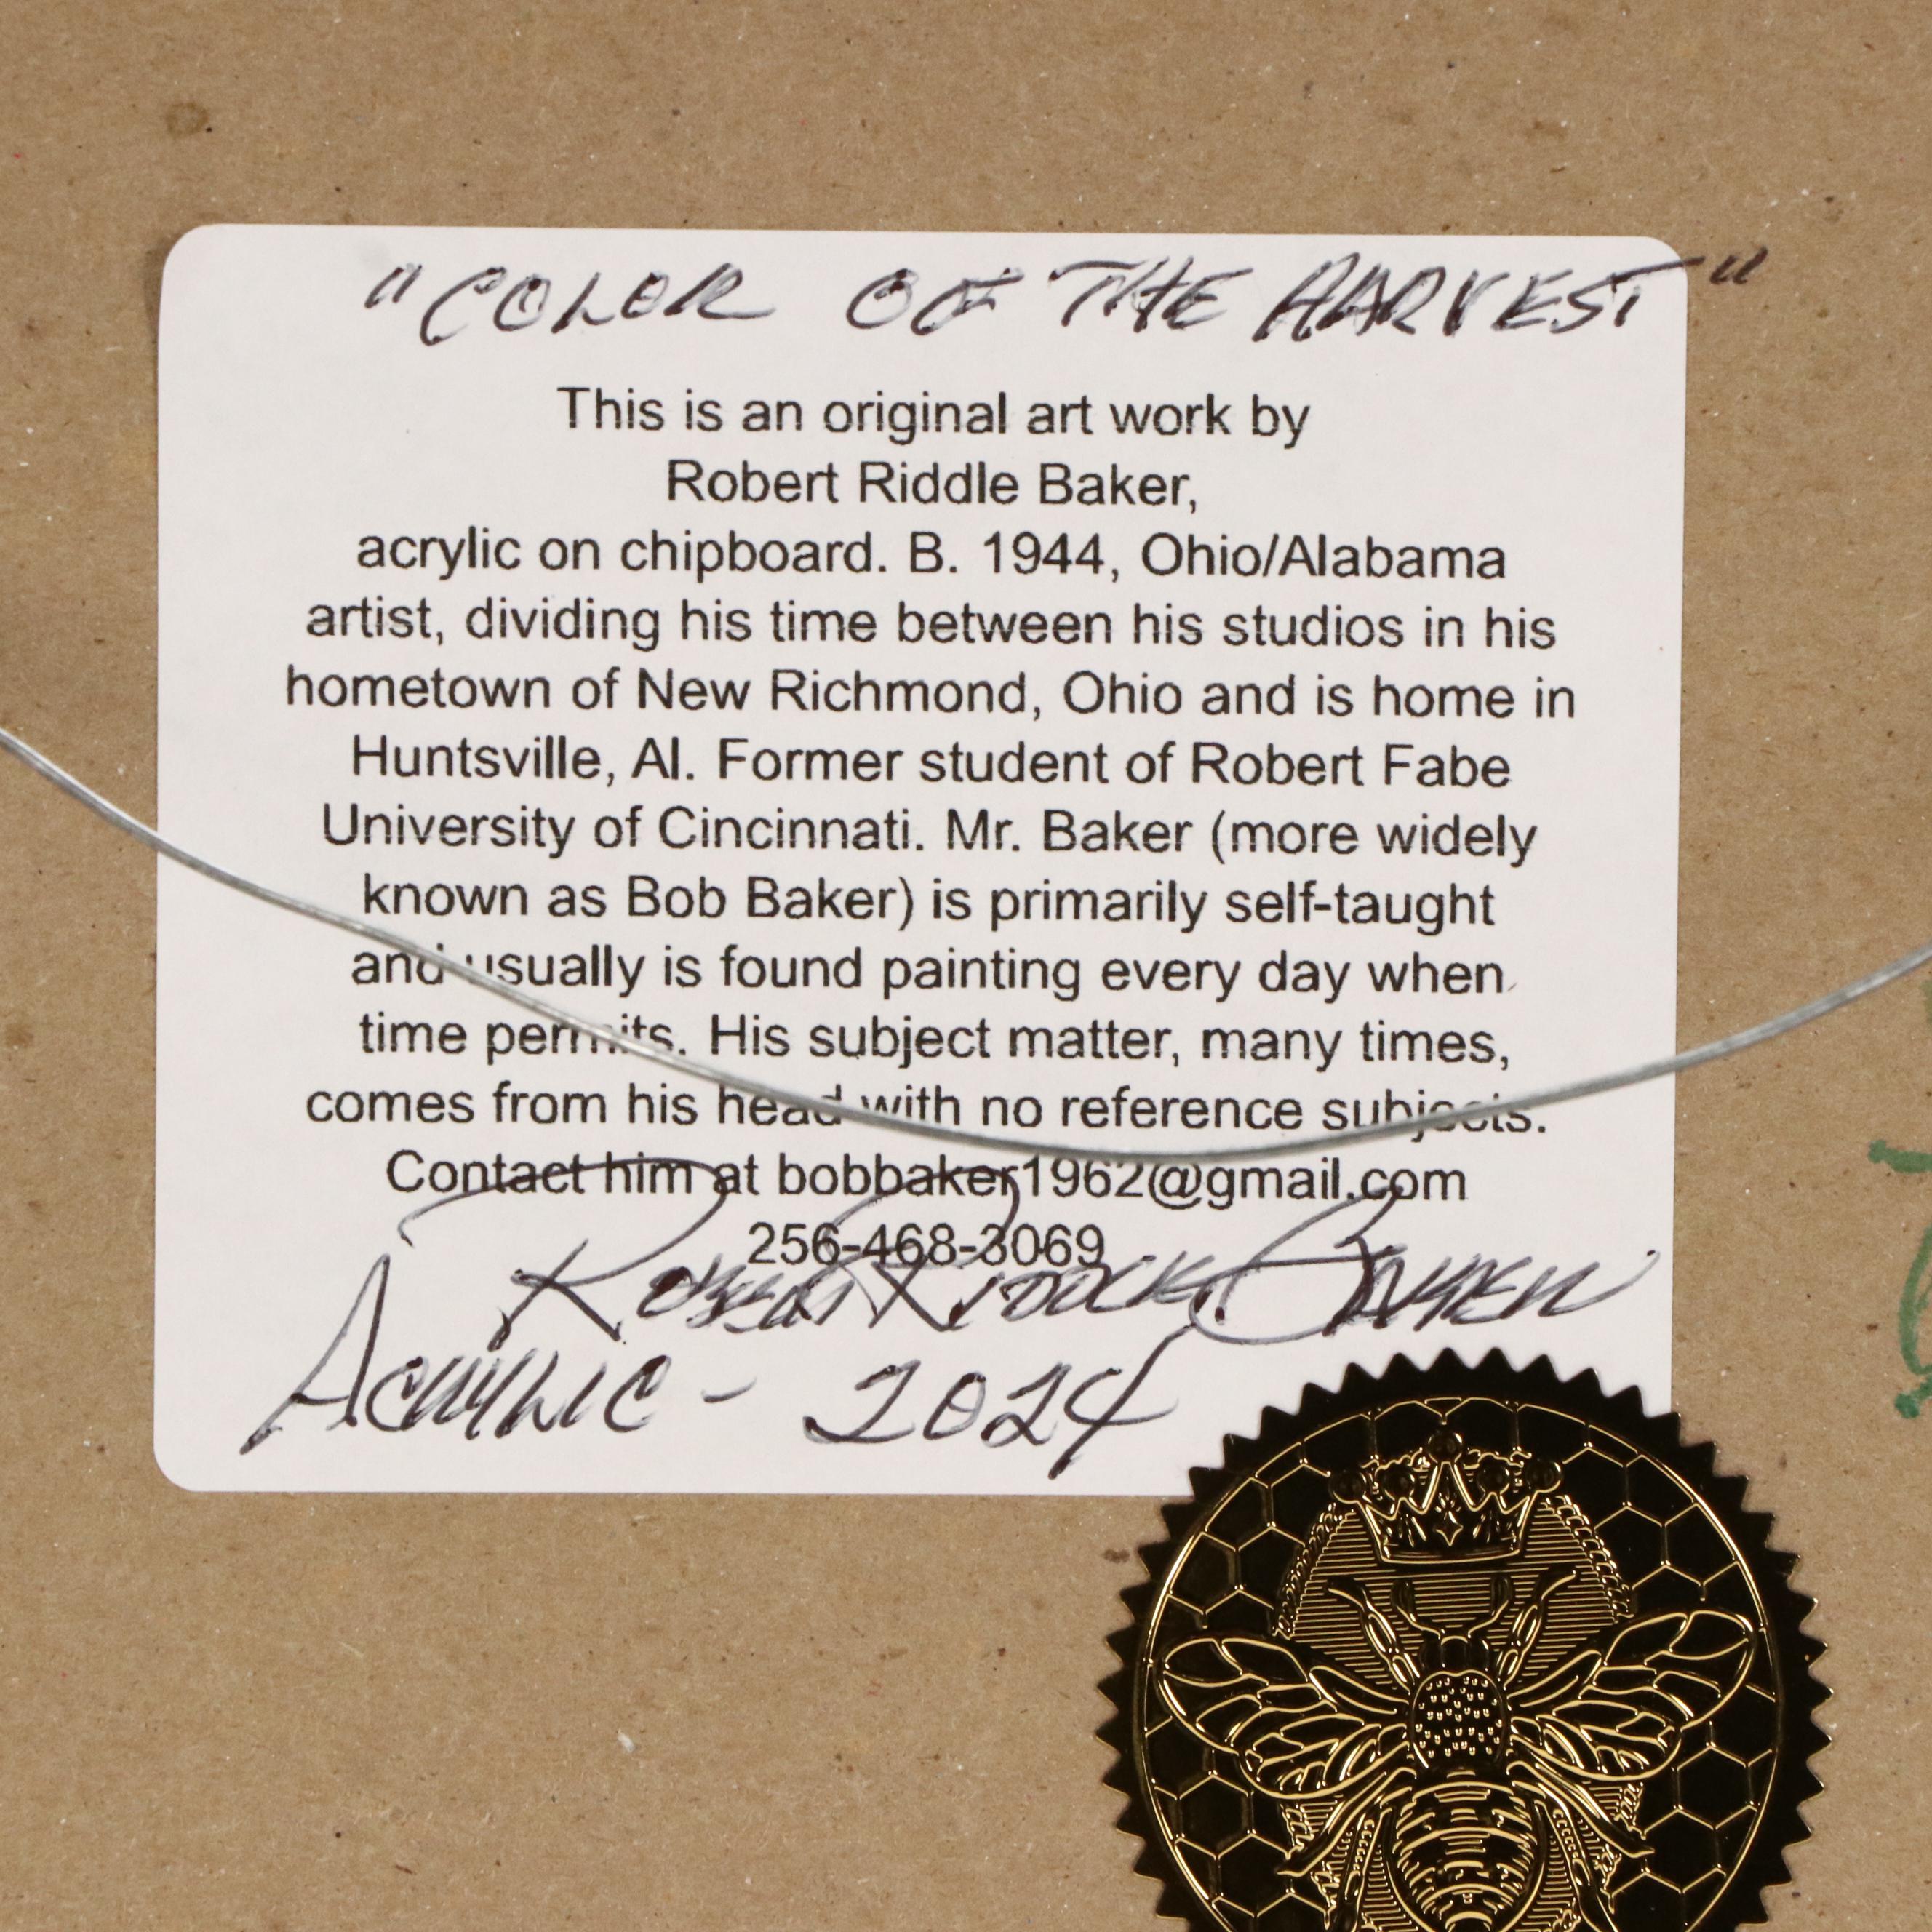 "COLOR OF THE HARVEST"
This is an original art work by
Robert Riddle Baker,
acrylic on chipboard. B. 1944, Ohio/Alabama
artist, dividing his time between his studios in his
hometown of New Richmond, Ohio and is home in
Huntsville, Al. Former student of Robert Fabe
University of Cincinnati. Mr. Baker (more widely
known as Bob Baker) is primarily self-taught
and usually is found painting every day when
time permits. His subject matter, many times,
comes from his head with no reference subjects.
Contact him at bobbaker1962@gmail.com
256-468-3069
Robert Riddle Baker
Acrylic - 2024